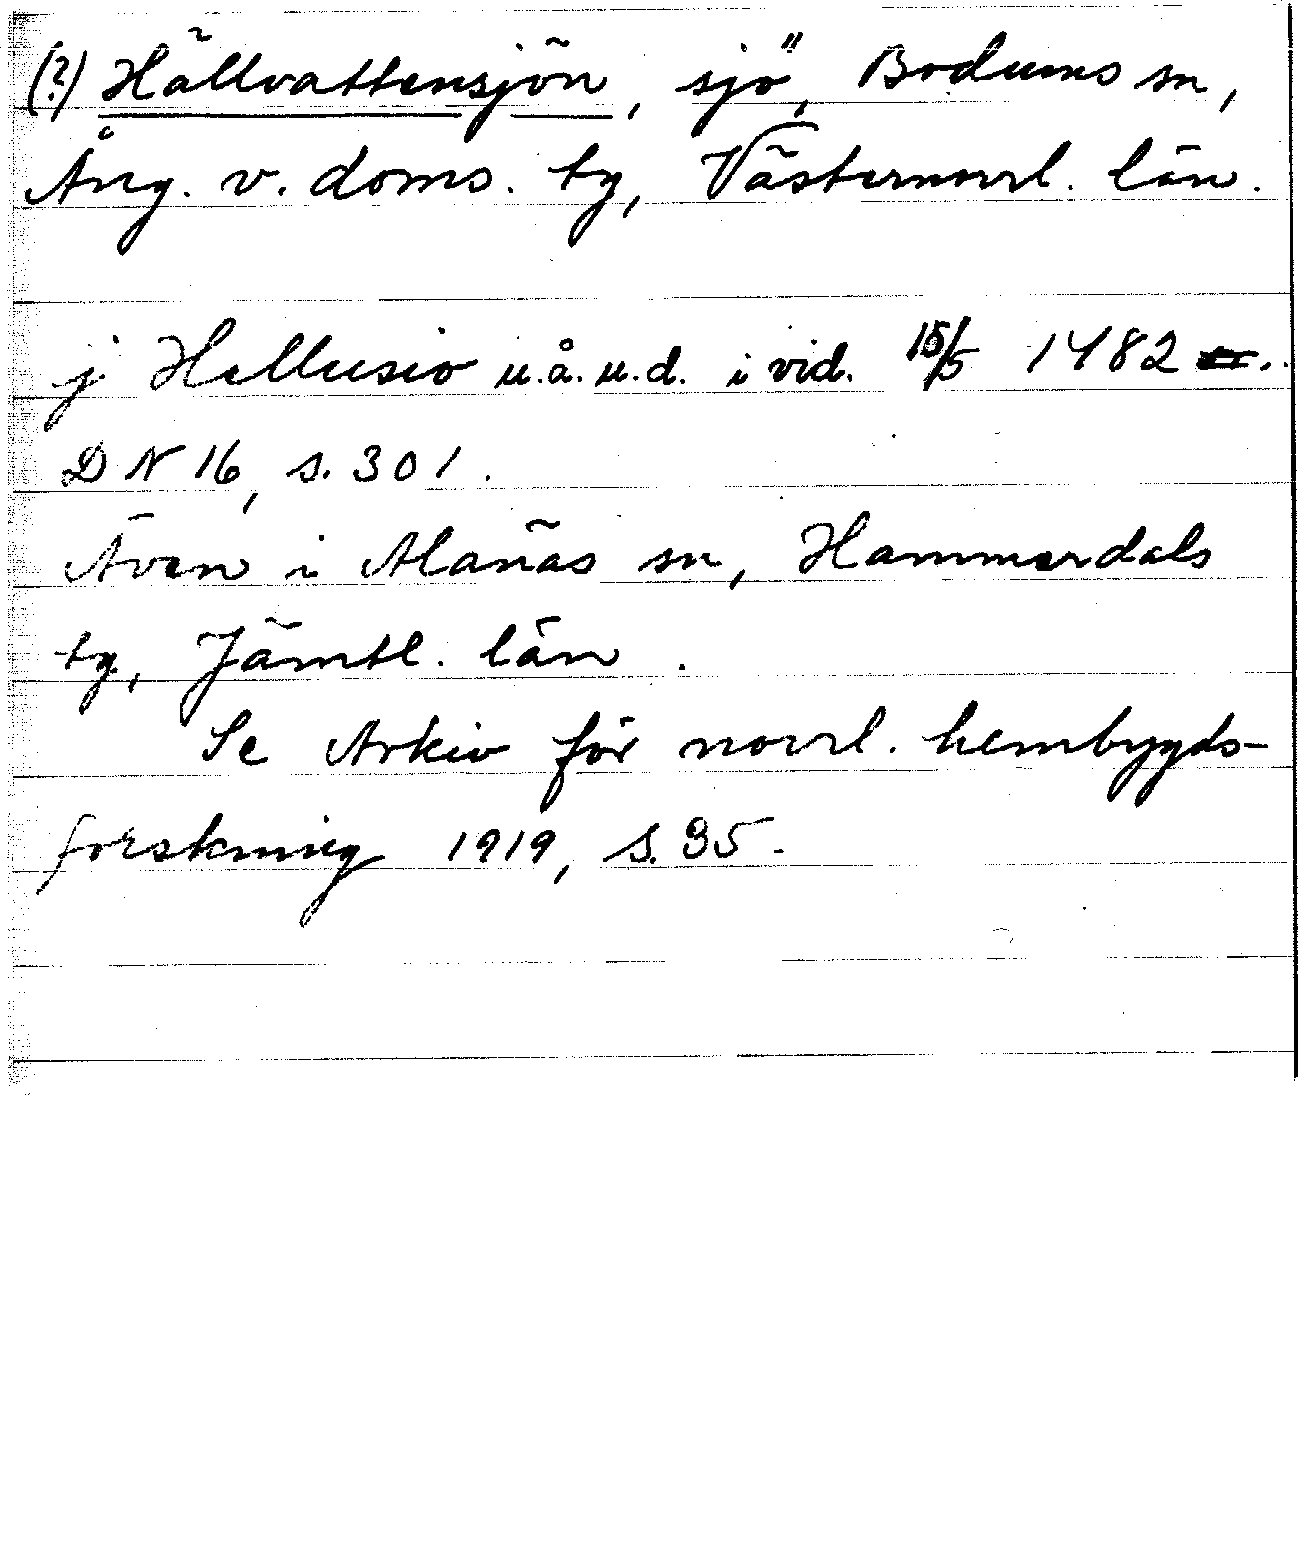 (?) Hällvattensjön, sjö, Bodums sn,
Ång. v. doms. tg, Västernorrl. län.
j Hellusio u.å.u.d. i vid. 15/5 1482
DN 16, s. 301.
Även i Alanäs sn, Hammerdals
tg, Jämtl. län.
Se Arkiv för norrl. hembygds-
forskning 1919, s. 35.